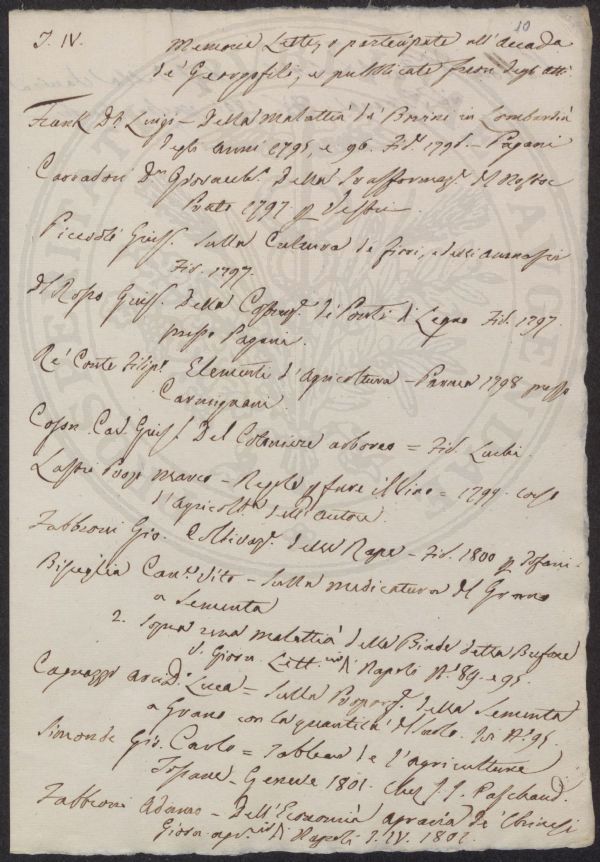 10
T. IV. Memorie Lette, o partecipate all'Accada
de' Georgofili, e pubblicate fuori degli atti
Frank Dr. Luigi - Della Malattia de' Bovini in Lombardia
degli anni 1795, e 96. Fir. 1796. - Pagani
Carradori Dr. Giovacch. Della Trasformaz. del Nostoc
Prato 1797 p Vestri
Piccioli Gius. Sulla Cultura de fiori, e dell'ananassi
Fir. 1797.
del Rosso Gius. Della Costruz. de Ponti di Legno Fir. 1797.
presso Pagani.
Re' Conte Filip. Elementi d'Agricoltura - Parma 1798 presso
Carmignani
Cav. Gius. Del Cotoniere arboreo = Fir. Luchi.
Lastri Marco - Regole p fare il Vino = 1799. corso
d'Agricoltra dell'autore.
Fabbroni Gio. Coltivaz. delle Rape - Fir. 1800 p Tofani.
Bisceglia Can. Vito - Sulla medicatura del Grano
a Sementa
2. Sopra una malattia delle Biade detta
V. Giorn. Lett. di Napoli N. 89. e 95.
Cagnazzi arcid. Luca = Sulla Proporz. della Sementa
a Grano con la quantità del suolo. Ivi N. 95.
Simonde Gio. Carlo = Tableau de l'agriculture
Toscane - Geneve 1801. Chez J. J. Paschaud.
Fabbroni Adamo - Dell'Economia agraria de' Chinesi
Giorn. di Napoli T. IV. 1802.